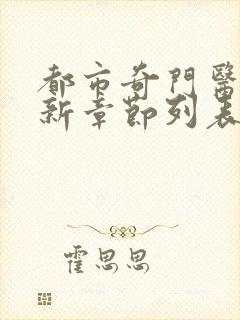 都市奇門醫
新章節列表
霍思思